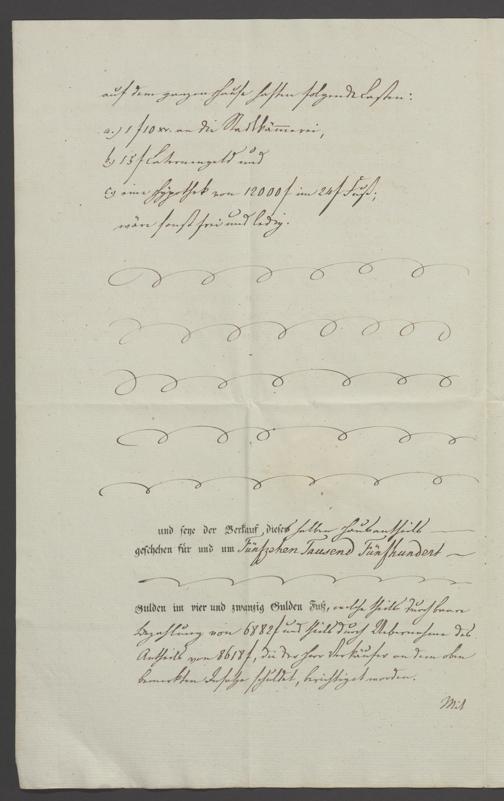 auf dem ganzen Hause haften folgende Lasten:
a.) 1 f 10 xr. an die Stadtkämmerei,
b) 15 f Laternengeld und
c) eine Hypothek von 12000 f im 24 f Fuß;
wäre sonst frei und ledig.
und seye der Verkauf dieses halben Hausantheils
geschehen für und um Fünfzehen Tausend Fünfhundert
Gulden im vier und zwanzig Gulden Fuß, welche theils durch baare
Bezahlung von 6882 f und theils durch Uebernahme des
Antheils von 8618 f, die der Herr Verkäufer an dem oben
bemerkten Insatze schuldet, berichtiget worden.
Mit